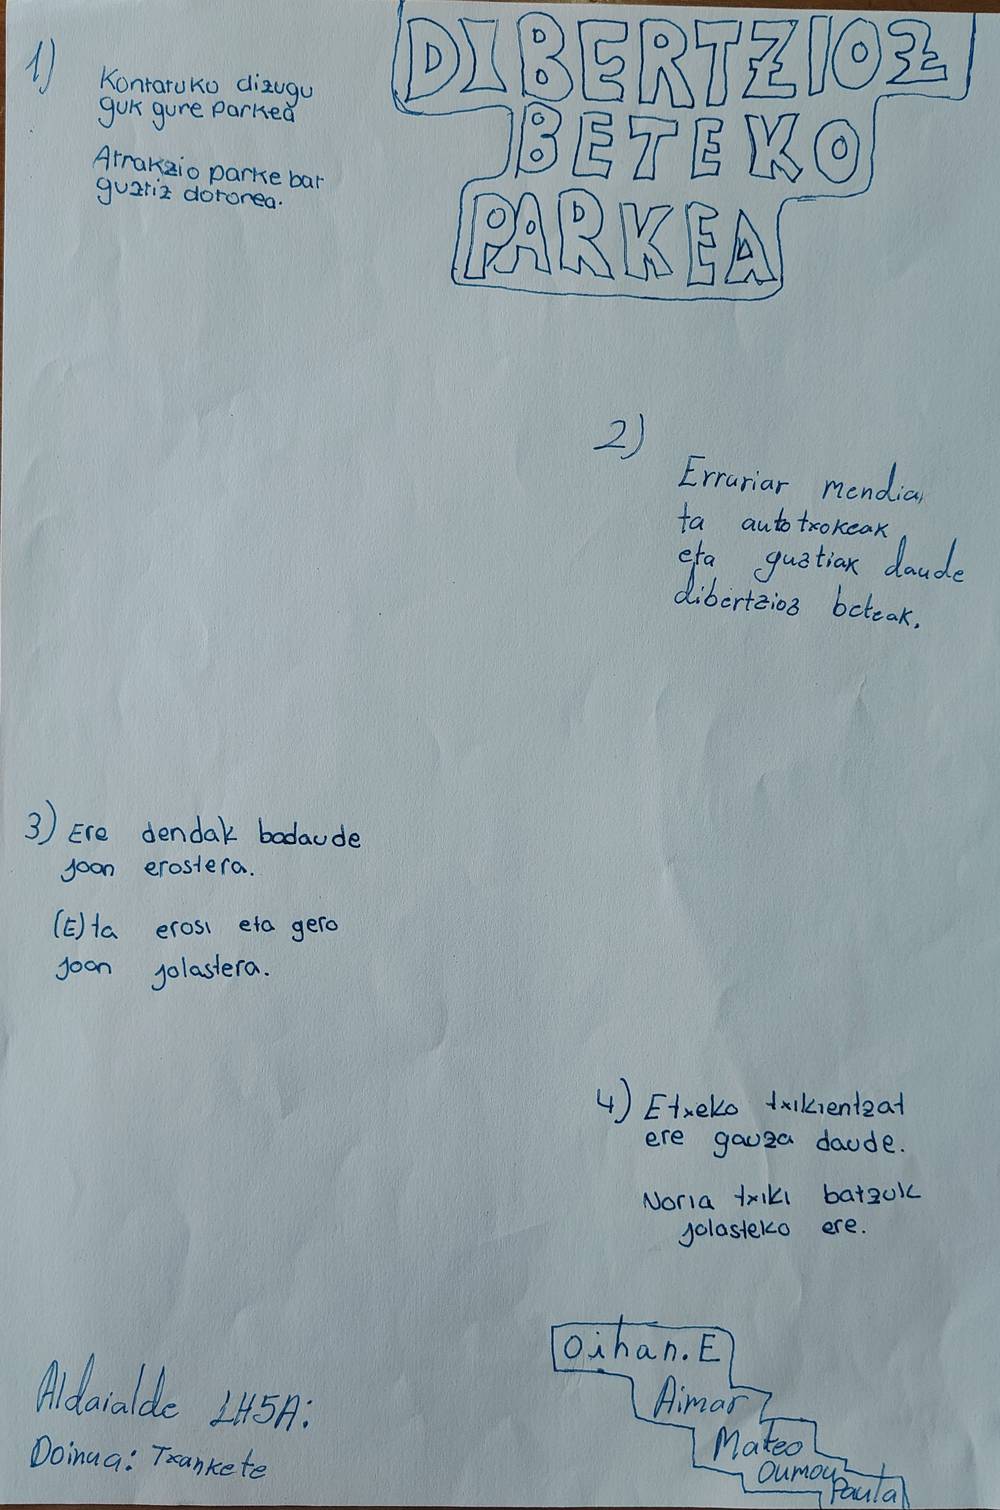 DIBERTZIOZ
BETEKO
PARKEA
1)
Kontatuko dizugu
guk gure parkea
Atrakzio parke bat
guztiz dotorea.
2)
Errusiar mendia,
ta auto txokeak
eta guztiak daude
dibertzioz beteak.
3) Ere dendak badaude
joan erostera.
(E)ta erosi eta gero
joan jolastera.
4) Etxeko txikientzat
ere gauza daude.
Noria txiki batzuk
jolasteko ere.
Aldaialde LH5A:
Doinua: Txankete
Oihan.E
Aimar
Mateo
Oumou
Paula